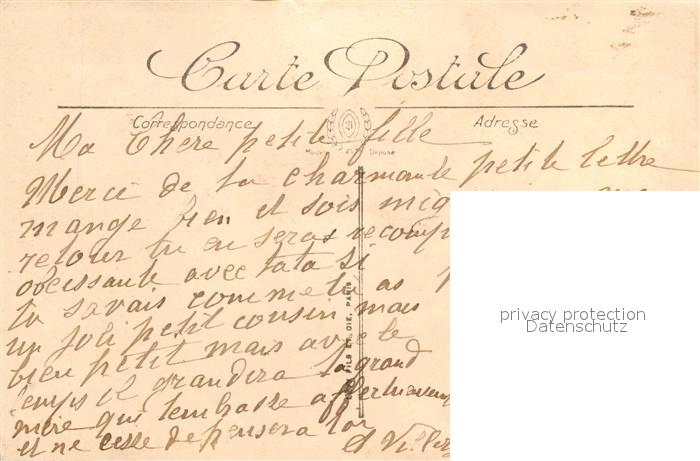 Carte Postale
Correspondance
Adresse
Ma Chere petite fille
Modèle Déposé
Merci de ta charmante petite lettre
mange bien et sois mig
retour tu en seras recomp
obeissante avec tata Si
tu savais comme tu as
un joli petit cousin mais
bien petit mais avec le
temps il grandira Ta grand
mère qui t'embrasse affectueusem
et ne cesse de penser a toi
FILS ET CIE, PARIS
privacy protection
Datenschutz